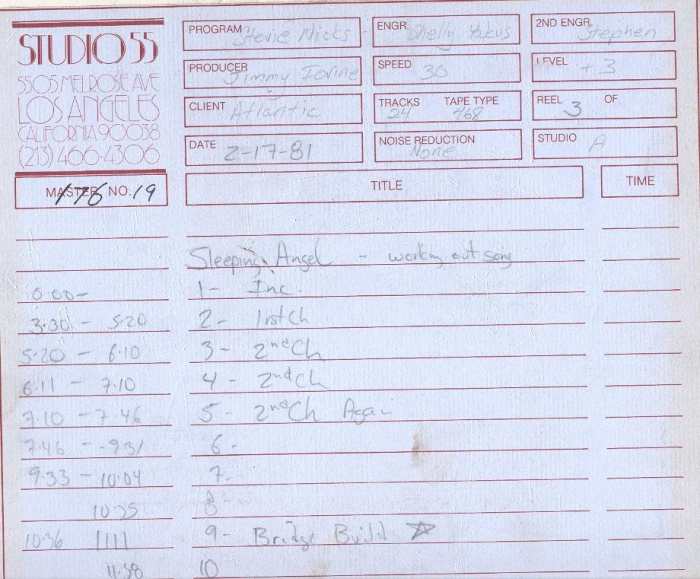 STUDIO 55
5505 MELROSE AVE
LOS ANGELES
CALIFORNIA 90038
(213) 466-4306
PROGRAM Stevie Nicks
ENGR. Shelly Yakus
2ND ENGR. Stephen
PRODUCER Jimmy Iovine
SPEED 30
LEVEL +3
CLIENT Atlantic
TRACKS 24 TAPE TYPE 468
REEL 3 OF
DATE 2-17-81
NOISE REDUCTION None
STUDIO A
MASTER NO. 19
176
TITLE
TIME
Sleeping Angel - working out song
0:00- 1- Inc.
3:30 - 5:20 2- 1rst Ch
5:20 - 6:10 3- 2nd Ch
6:11 - 7:10 4- 2nd Ch
7:10 - 7:46 5- 2nd Ch Again
7:46 - 9:31 6-
9:33 - 10:04 7-
10:25 8
10:36 1111 9- Bridge Build ☆
11:58 10